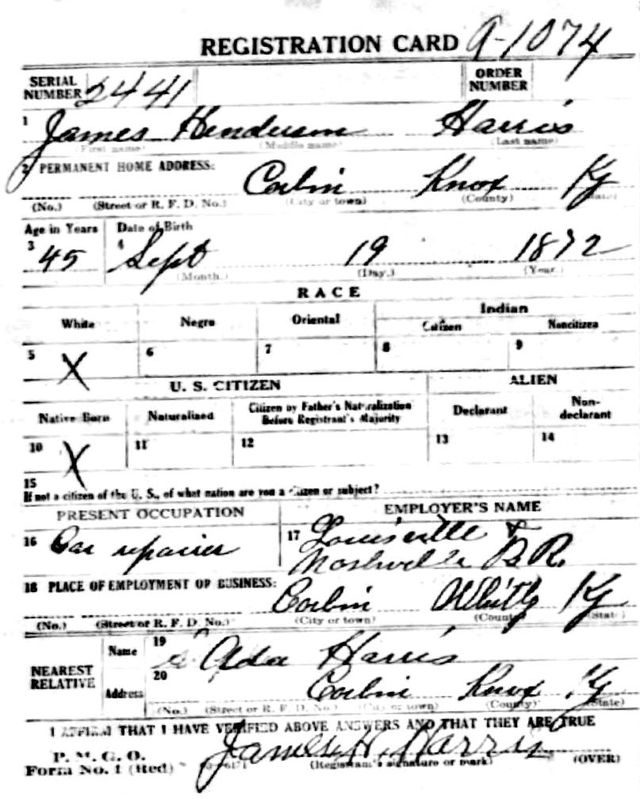 REGISTRATION CARD A-1074
SERIAL NUMBER 2441 ORDER NUMBER
1 James Henderson Harris
(First name) (Middle name) (Last name)
2 PERMANENT HOME ADDRESS:
Corbin Knox Ky
(No.) (Street or R. F. D. No.) (City or town) (County) (State)
Age in Years Date of Birth
3 45 4 Sept 19 1872
(Month.) (Day.) (Year.)
RACE
White Negro Oriental Indian
Citizen Noncitizen
5 X 6 7 8 9
U. S. CITIZEN ALIEN
Native Born Naturalized Citizen by Father's Naturalization Before Registrant's Majority Declarant Non-declarant
10 X 11 12 13 14
15
If not a citizen of the U. S., of what nation are you a citizen or subject?
PRESENT OCCUPATION EMPLOYER'S NAME
16 Car repairer 17 Louisville &
Nashville R.R.
18 PLACE OF EMPLOYMENT OR BUSINESS:
Corbin Whitly Ky
(No.) (Street or R. F. D. No.) (City or town) (County) (State)
NEAREST RELATIVE
Name 19 Ada Harris
Address 20 Corbin Knox Ky
(No.) (Street or R. F. D. No.) (City or town) (County) (State)
I AFFIRM THAT I HAVE VERIFIED ABOVE ANSWERS AND THAT THEY ARE TRUE
P. M. G. O.
Form No. 1 (Red) James H. Harris
(Registrant's signature or mark) (OVER)